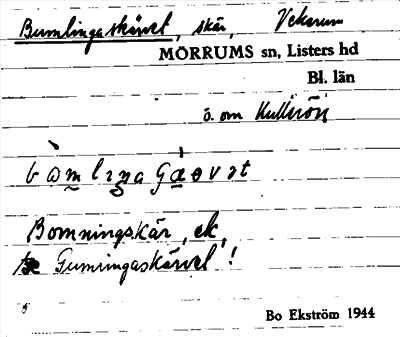 Bumlingaskärvet, skär, Vekerum
MÖRRUMS sn, Listers hd
Bl. län
ö. om Kullerön
Bomningskär, ek,
se Gumringaskärvet!
Bo Ekström 1944